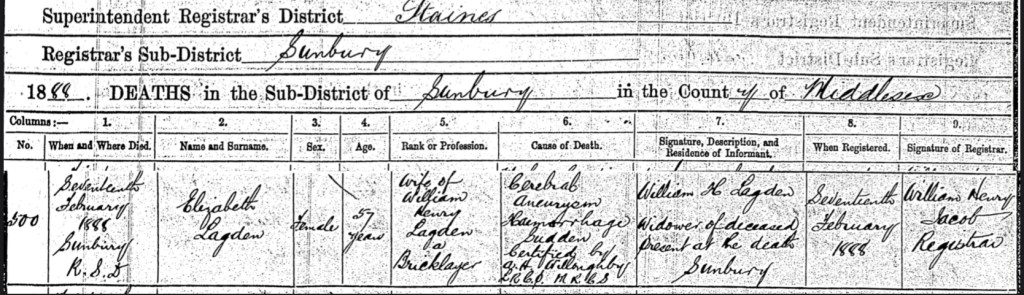 Superintendent Registrar's District Staines
Registrar's Sub-District Sunbury
1888. DEATHS in the Sub-District of Sunbury in the County of Middlesex
Columns:— 1. 2. 3. 4. 5. 6. 7. 8. 9.
No. When and Where Died. Name and Surname. Sex. Age. Rank or Profession. Cause of Death. Signature, Description, and Residence of Informant. When Registered. Signature of Registrar.
500
Seventeenth
February
1888
Sunbury
R.S.D
Elizabeth
Lagden
Female
57
years
Wife of
William
Henry
Lagden
a
Bricklayer
Cerebral
Aneurysm
Haemorrhage
Sudden
Certified by
W.H. Willoughby
L.R.C.P. M.R.C.S
William H Lagden
Widower of deceased
Present at the death
Sunbury
Seventeenth
February
1888
William Henry
Jacob
Registrar